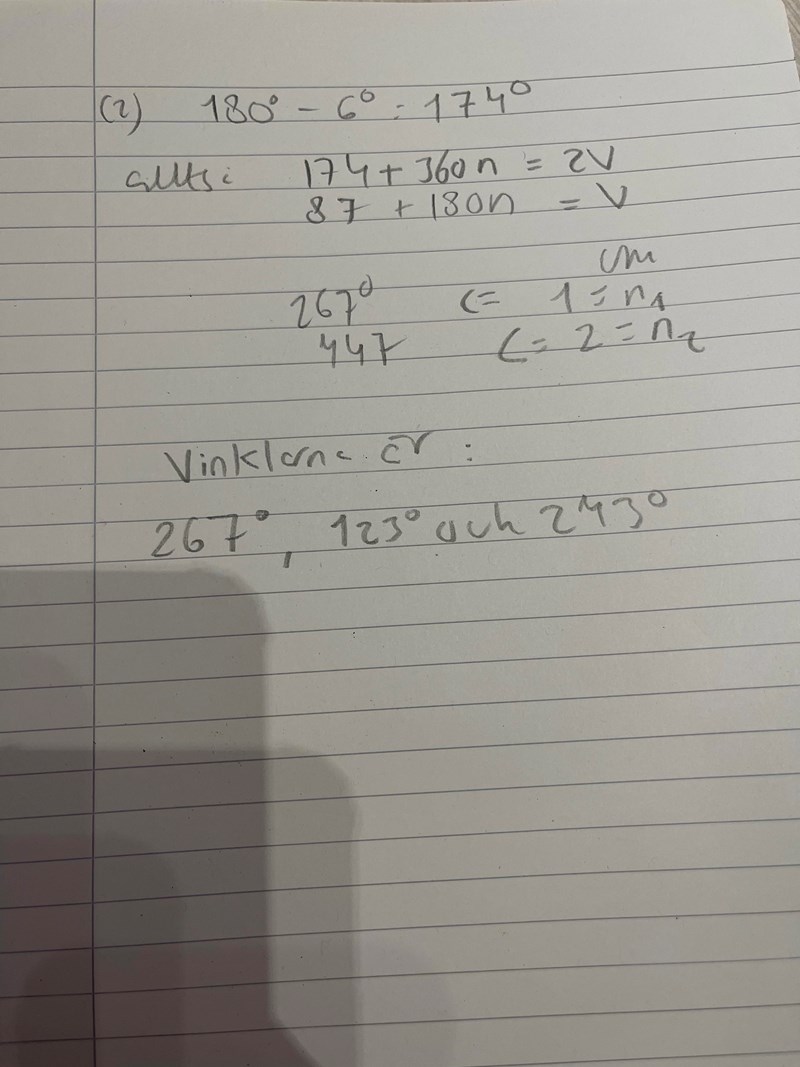 (2) 180° - 6° = 174°
alltså: 174 + 360n = 2V
87 + 180n = V
om
267° <= 1 = n₁
447 <= 2 = n₂
Vinklarna är:
267°, 123° och 243°